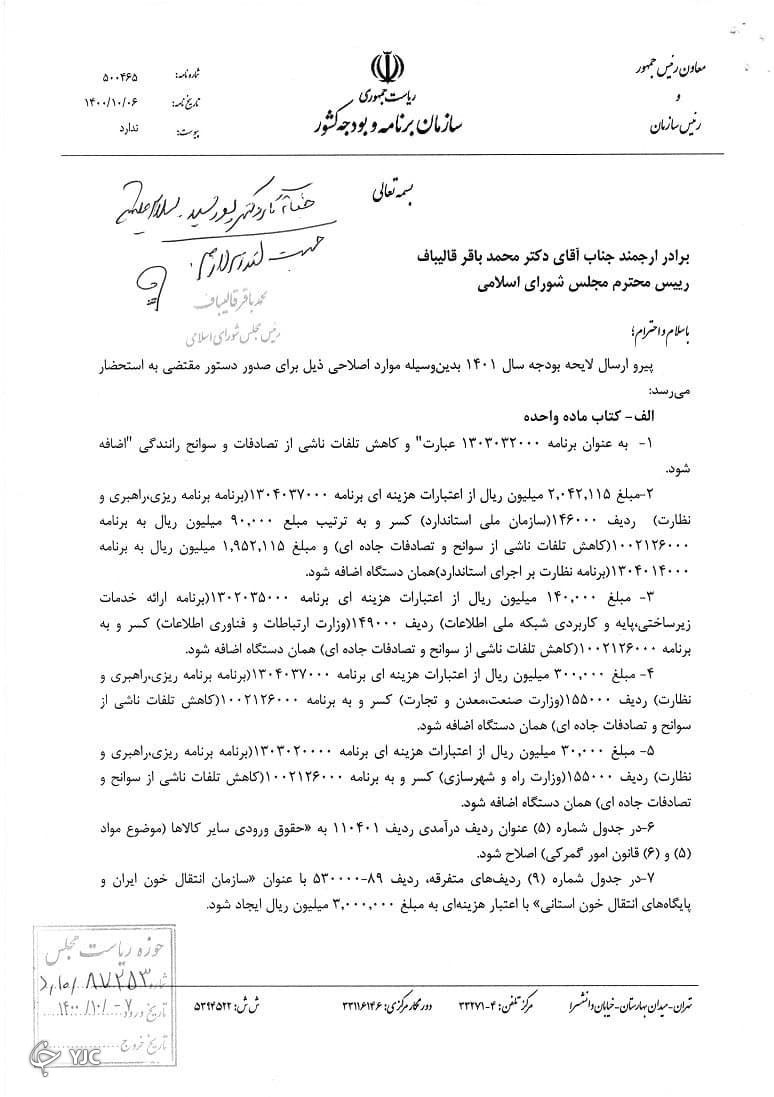 معاون رئیس جمهور
و
رئیس سازمان
ریاست جمهوری
سازمان برنامه و بودجه کشور
شماره نامه: ۵۰۰۴۶۵
تاریخ نامه: ۱۴۰۰/۱۰/۰۶
پیوست: ندارد
بسمه تعالی
جناب آقای دکتر
جهت
محمد باقر قالیباف
رئیس مجلس شورای اسلامی
برادر ارجمند جناب آقای دکتر محمد باقر قالیباف
رییس محترم مجلس شورای اسلامی
باسلام و احترام؛
پیرو ارسال لایحه بودجه سال ۱۴۰۱ بدین‌وسیله موارد اصلاحی ذیل برای صدور دستور مقتضی به استحضار
می‌رسد:
الف- کتاب ماده واحده
۱- به عنوان برنامه ۱۳۰۳۰۳۲۰۰۰ عبارت" و کاهش تلفات ناشی از تصادفات و سوانح رانندگی "اضافه
شود.
۲-مبلغ ۲,۰۴۲,۱۱۵ میلیون ریال از اعتبارات هزینه ای برنامه ۱۳۰۴۰۳۷۰۰۰(برنامه برنامه ریزی،راهبری و
نظارت) ردیف ۱۴۶۰۰۰(سازمان ملی استاندارد) کسر و به ترتیب مبلغ ۹۰,۰۰۰ میلیون ریال به برنامه
۱۰۰۲۱۲۶۰۰۰(کاهش تلفات ناشی از سوانح و تصادفات جاده ای) و مبلغ ۱,۹۵۲,۱۱۵ میلیون ریال به برنامه
۱۳۰۴۰۱۴۰۰۰(برنامه نظارت بر اجرای استاندارد)همان دستگاه اضافه شود.
۳- مبلغ ۱۴۰,۰۰۰ میلیون ریال از اعتبارات هزینه ای برنامه ۱۳۰۲۰۳۵۰۰۰(برنامه ارائه خدمات
زیرساختی،پایه و کاربردی شبکه ملی اطلاعات) ردیف ۱۴۹۰۰۰(وزارت ارتباطات و فناوری اطلاعات) کسر و به
برنامه ۱۰۰۲۱۲۶۰۰۰(کاهش تلفات ناشی از سوانح و تصادفات جاده ای) همان دستگاه اضافه شود.
۴- مبلغ ۳۰۰,۰۰۰ میلیون ریال از اعتبارات هزینه ای برنامه ۱۳۰۴۰۳۷۰۰۰(برنامه برنامه ریزی،راهبری و
نظارت) ردیف ۱۵۵۰۰۰(وزارت صنعت،معدن و تجارت) کسر و به برنامه ۱۰۰۲۱۲۶۰۰۰(کاهش تلفات ناشی از
سوانح و تصادفات جاده ای) همان دستگاه اضافه شود.
۵- مبلغ ۳۰,۰۰۰ میلیون ریال از اعتبارات هزینه ای برنامه ۱۳۰۳۰۲۰۰۰۰(برنامه برنامه ریزی،راهبری و
نظارت) ردیف ۱۵۵۰۰۰(وزارت راه و شهرسازی) کسر و به برنامه ۱۰۰۲۱۲۶۰۰۰(کاهش تلفات ناشی از سوانح و
تصادفات جاده ای) همان دستگاه اضافه شود.
۶-در جدول شماره (۵) عنوان ردیف درآمدی ردیف ۱۱۰۴۰۱ به «حقوق ورودی سایر کالاها (موضوع مواد
(۵) و (۶) قانون امور گمرکی) اصلاح شود.
۷-در جدول شماره (۹) ردیف‌های متفرقه، ردیف ۸۹-۵۳۰۰۰۰ با عنوان «سازمان انتقال خون ایران و
پایگاه‌های انتقال خون استانی» با اعتبار هزینه‌ای به مبلغ ۳,۰۰۰,۰۰۰ میلیون ریال ایجاد شود.
حوزه ریاست مجلس
شماره ۸۷۲۵۳
تاریخ ورود ۱۴۰۰/۱۰/۰۷
تاریخ خروج
تهران-میدان بهارستان-خیابان دانشسرا مرکز تلفن: ۴-۳۳۲۷۱ دورنگار مرکزی: ۳۳۱۱۶۱۴۶ ش ش: ۵۳۹۴۵۲۲
YJC